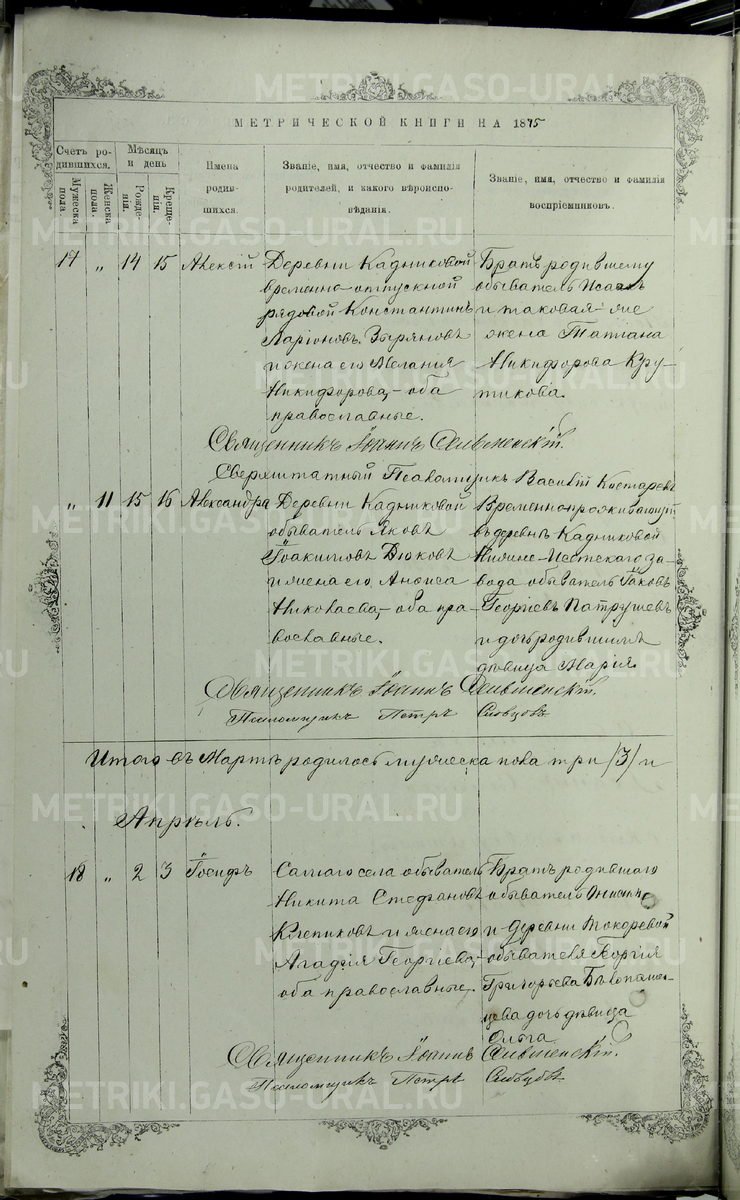 МЕТРИЧЕСКОЙ КНИГИ НА 1875
Счетъ родившихся.
Мужеска пола.
Женска пола.
Мѣсяцъ и день
Рожденія.
Крещенія.
Имена родившихся.
Званіе, имя, отчество и фамилія родителей, и какого вѣроисповѣданія.
Званіе, имя, отчество и фамилія воспріемниковъ.
17 " 14 15 Алексій
Деревни Кадниковой
временно-отпускной
рядовой Константинъ
Ларіоновъ Зыряновъ
и жена его Меланія
Никифорова, – оба
православные.
Братъ родившему
обыватель Исаакъ
и таковая-же
жена Татіана
Никифорова Кру-
тикова.
Священникъ Іоаннъ
Сверхштатный Псаломщикъ Василій Костаревъ
" 11 15 16 Александра
Деревни Кадниковой
обыватель Яковъ
Іоакимовъ Дюковъ
и жена его Аниса
Николаева, – оба пра-
вославные.
Временнопроживающій
въ деревнѣ Кадниковой
Нижне-Исетскаго за-
вода обыватель Іаковъ
Георгіевъ Патрушевъ
и дочь родившимъ
дѣвица Марія
Священникъ Іоаннъ
Псаломщикъ Петръ Словцовъ
Итого въ Мартѣ родилось мужеска пола три /3/ и
Апрѣль.
18 " 2 3 Іосифъ
Самаго села обыватель
Никита Стефановъ
Клепиковъ и жена его
Агафія Георгіева, –
оба православные.
Братъ родившаго
обыватель
и деревни Токаревой
обывателя Георгія
Григорьева Бѣлопаше-
цева дочь дѣвица
Ольга
Священникъ Іоаннъ
Псаломщикъ Петръ Словцовъ
METRIKI.GASO-URAL.RU